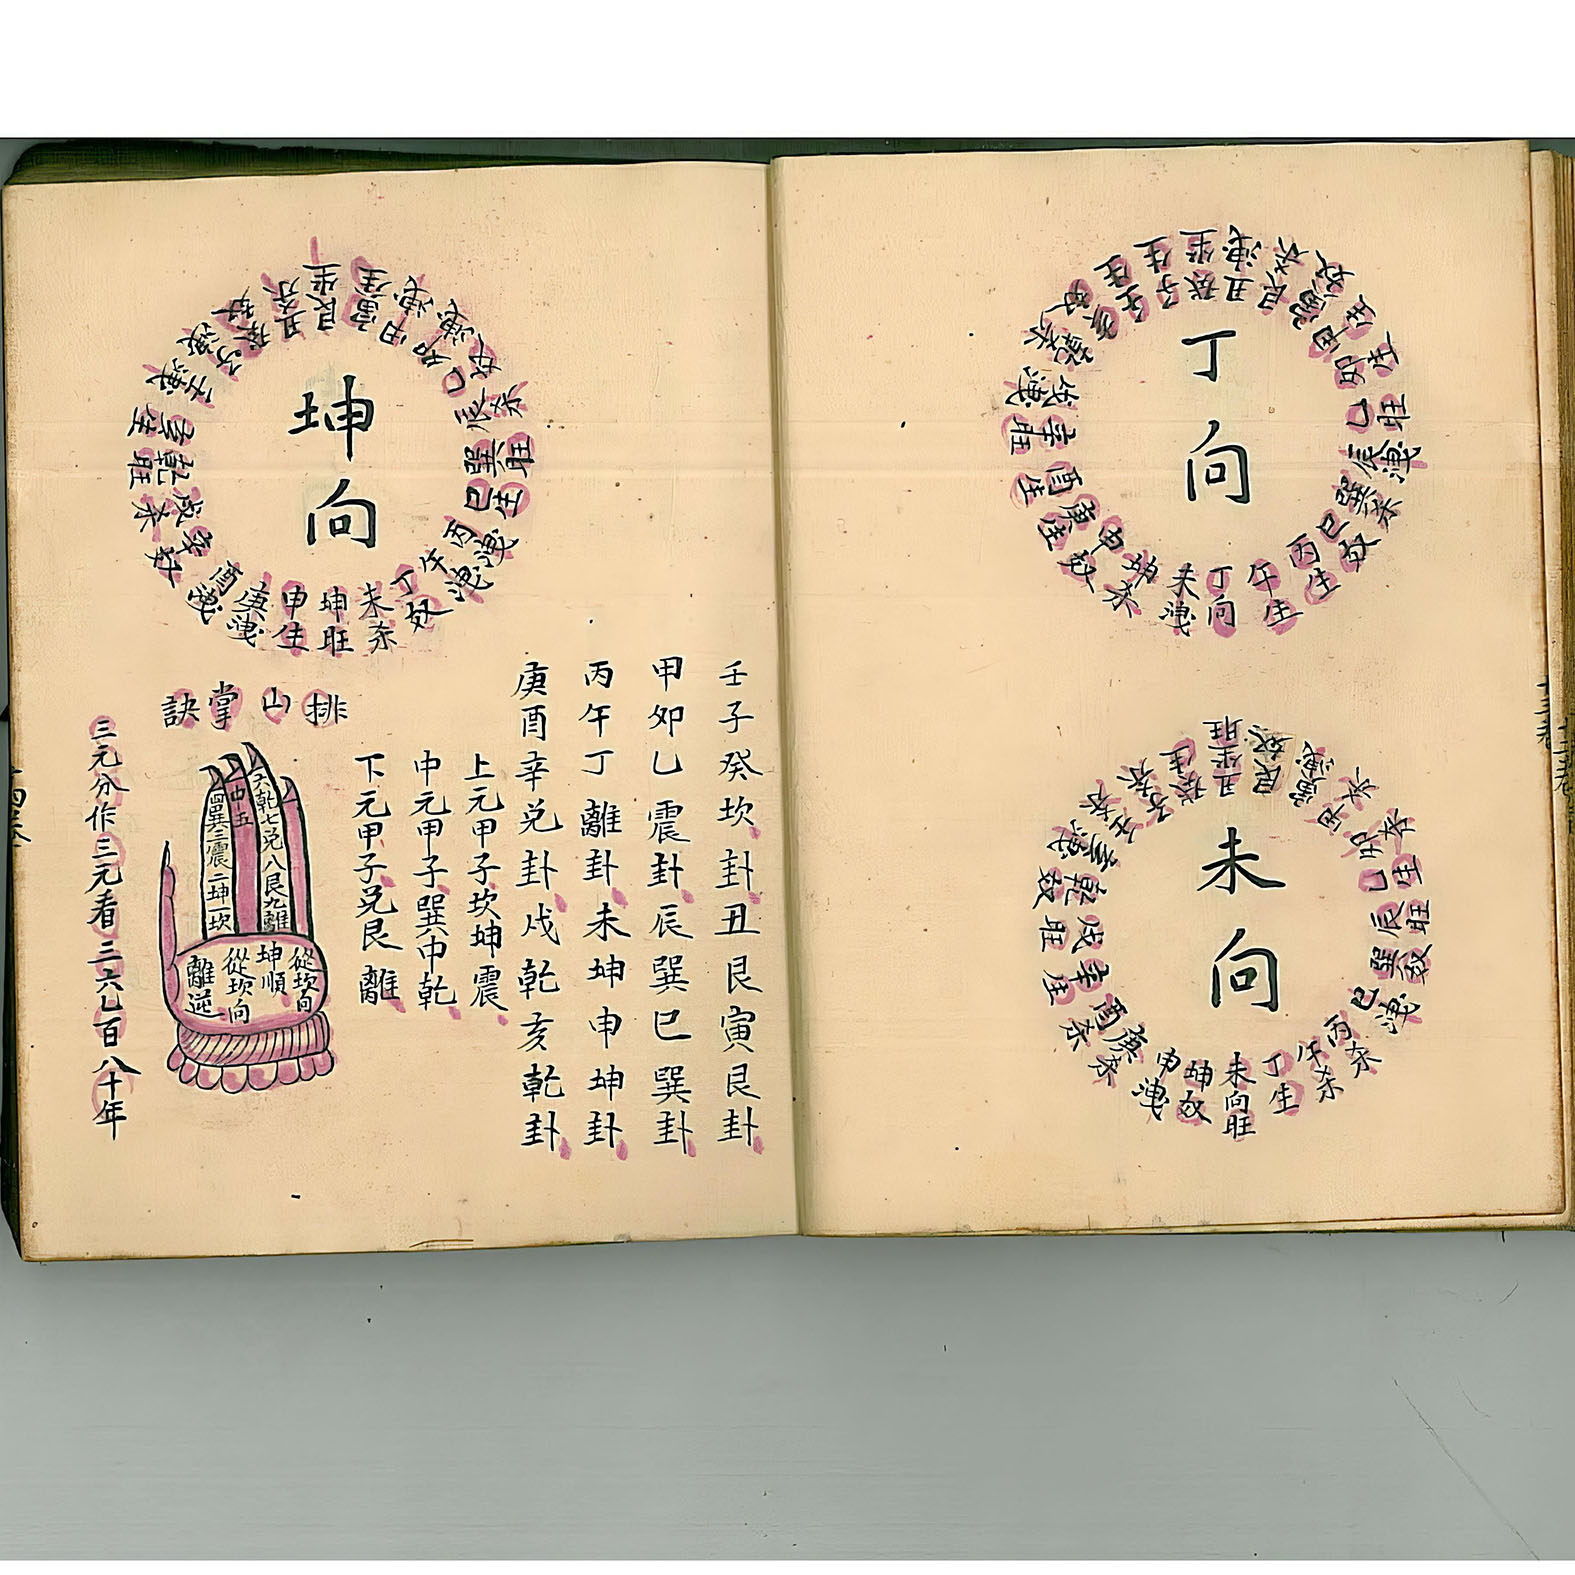 丁向
丁向
午生
丙生
巳奴
巽杀
辰洩
乙旺
卯生
甲生
艮杀
丑洩
癸坐
子生
壬生
亥奴
乾杀
戌洩
辛旺
酉生
庚生
申奴
坤杀
未洩
未向
未向旺
丁生
午杀
丙杀
巳洩
巽奴
辰旺
乙生
卯杀
甲杀
寅洩
艮奴
丑坐旺
癸生
子杀
壬杀
亥洩
乾奴
戌旺
辛生
酉杀
庚杀
申洩
坤奴
坤向
坤旺
未杀
丁奴
午洩
丙洩
巳生
巽旺
辰杀
乙奴
卯洩
甲洩
寅生
艮坐
丑杀
癸奴
子洩
壬洩
亥生
乾旺
戌杀
辛奴
酉洩
庚洩
申生
壬子癸坎卦丑艮寅艮卦
甲卯乙震卦辰巽巳巽卦
丙午丁離卦未坤申坤卦
庚酉辛兌卦戌乾亥乾卦
上元甲子坎坤震
中元甲子巽中乾
下元甲子兌艮離
排山掌訣
六乾七兌八艮九離
中五
四巽三震二坤一坎
從坎向
坤順
從坎向
離逆
三元分作三元看三六乚百八十年